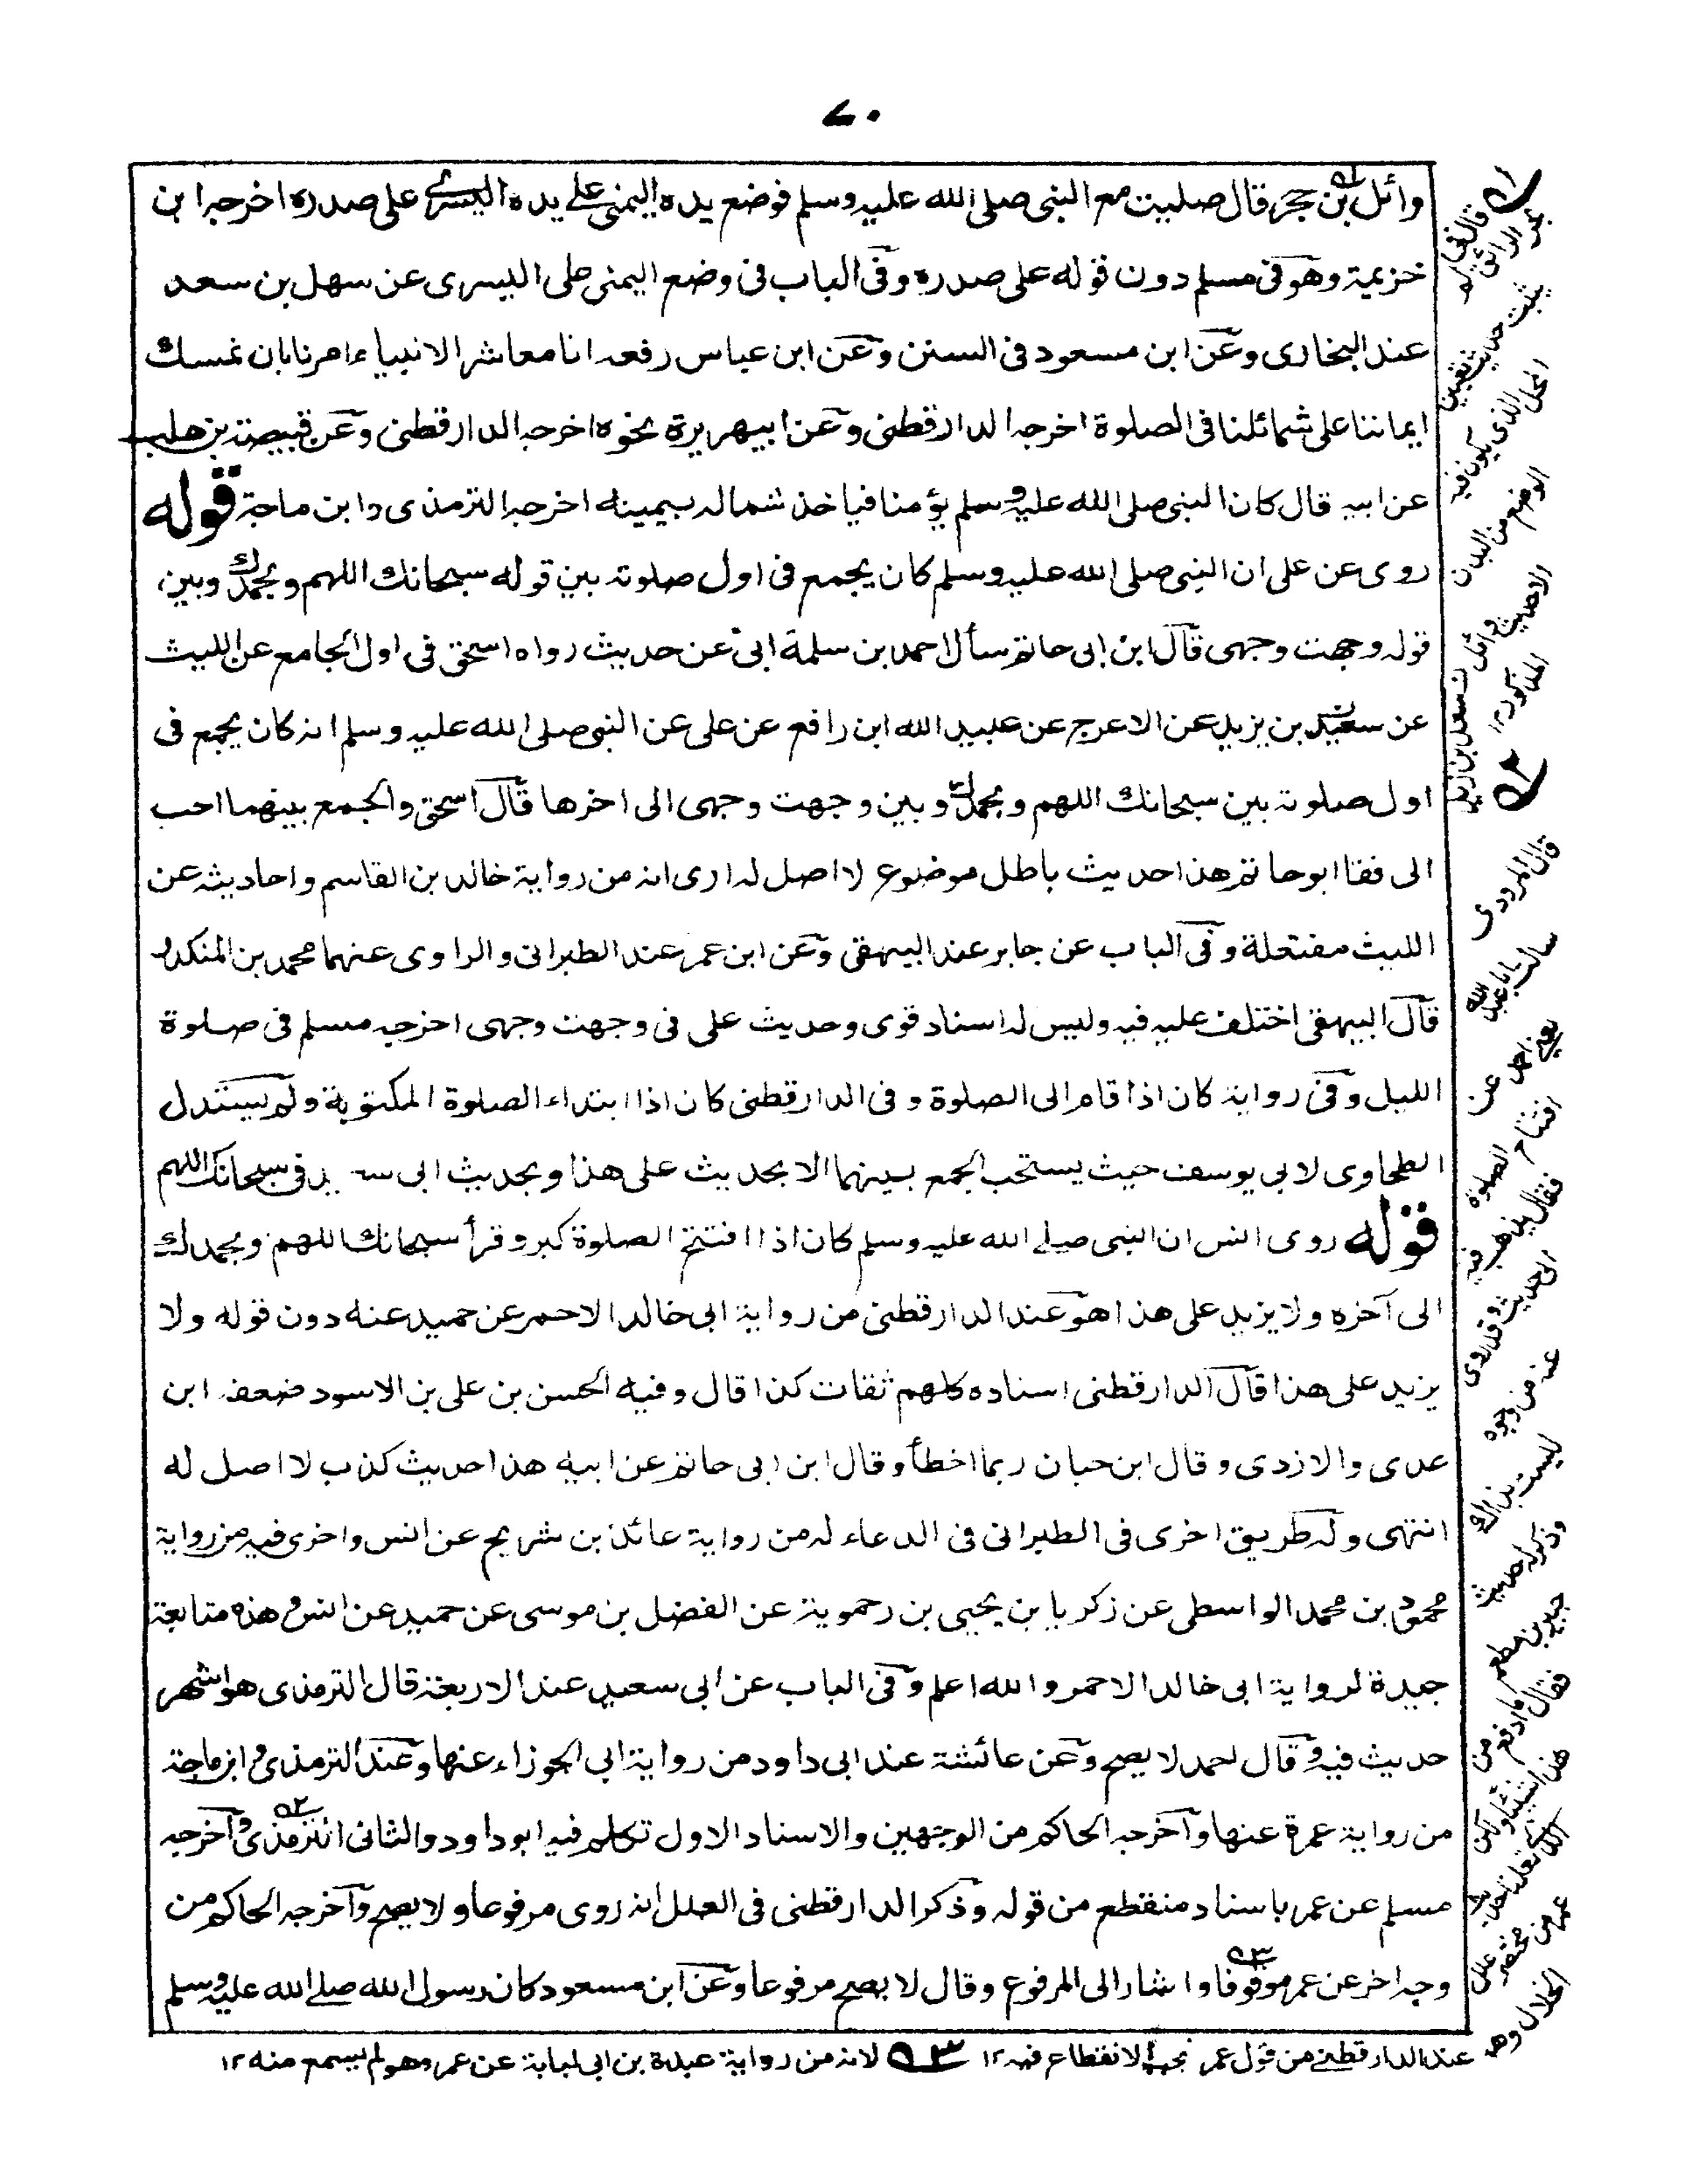 ٧٠
وائل بن حجر قال صليت مع النبى صلى الله عليه وسلم فوضع يده اليمنى على يده اليسرى على صدره اخرجه ابن
خزيمة وهو فى مسلم دون قوله على صدره وفى الباب فى وضع اليمنى على اليسرى عن سهل بن سعد
عند البخارى وعن ابن مسعود فى السنن وعن ابن عباس رفعه انا معاشر الانبياء امرنا بان نمسك
ايماننا على شمائلنا فى الصلوة اخرجه الدارقطنى وعن ابيهريرة نحوه اخرجه الدارقطنى وعن قبيصة بن هلب
عن ابيه قال كان النبى صلى الله عليه وسلم يؤمنا فياخذ شماله بيمينه اخرجه الترمذى وابن ماجة قوله
روى عن على ان النبى صلى الله عليه وسلم كان يجمع فى اول صلوته بين قوله سبحانك اللهم وبحمدك وبين
قوله وجهت وجهى قال ابن ابى حاتم سأل احمد بن سلمة ابى عن حديث رواه اسحق فى اول الجامع عن الليث
عن سعيد بن يزيد عن الاعرج عن عبيد الله ابن رافع عن على عن النبى صلى الله عليه وسلم انه كان يجمع فى
اول صلوته بين سبحانك اللهم وبحمدك وبين وجهت وجهى الى اخرها قال اسحق والجمع بينهما احب
الى فقا ابو حاتم هذا حديث باطل موضوع لا اصل له ارى انه من رواية خالد بن القاسم واحاديثه عن
الليث مفتعلة وفى الباب عن جابر عند البيهقى وعن ابن عمر عند الطبرانى والراوى عنهما محمد بن المنكدر
قال البيهقى اختلف عليه فيه وليس له اسناد قوى وحديث على فى وجهت وجهى اخرجه مسلم فى صلوة
الليل وفى رواية كان اذا قام الى الصلوة وفى الدارقطنى كان اذا ابتداء الصلوة المكتوبة ولم يستدل
الطحاوى لابى يوسف حيث يستحب الجمع بينهما الا بحديث على هذا وبحديث ابى سعيد فى سبحانك اللهم
قوله روى انس ان النبى صلے الله عليه وسلم كان اذا افتتح الصلوة كبر وقرأ سبحانك اللهم وبحمدك
الى آخره ولا يزيد على هذا هو عند الدارقطنى من رواية ابى خالد الاحمر عن حميد عنه دون قوله ولا
يزيد على هذا قال الدارقطنى اسناده كلهم ثقات كذا قال وفيه الحسن بن على بن الاسود ضعفه ابن
عدى والازدى وقال ابن حبان ربما اخطأ وقال ابن ابى حاتم عن ابيه هذا حديث كذب لا اصل له
انتهى وله طريق اخرى فى الطبرانى فى الدعاء له من رواية عائذ بن شريح عن انس واخرى فيه من رواية
محمود بن محمد الواسطى عن زكريا بن يحيى بن رحموية عن الفضل بن موسى عن حميد عن انس وهذه متابعة
جيدة لرواية ابى خالد الاحمر والله اعلم وفى الباب عن ابى سعيد عند الاربعة قال الترمذى هو اشهر
حديث فيه وقال احمد لا يصح وعن عائشة عند ابى داود من رواية ابى الجوزاء عنها وعند الترمذى وابن ماجة
من رواية عمرة عنها وآخرجه الحاكم من الوجهين والاسناد الاول تكلم فيه ابو داود والثانى الترمذى وآخرجه
مسلم عن عمر باسناد منقطع من قوله وذكر الدارقطنى فى العلل انه روى مرفوعا ولا يصح وآخرجه الحاكم من
وجه اخر عن عمر موقوفا واشار الى المرفوع وقال لا يصح مرفوعا وعن ابن مسعود كان رسول الله صلے الله عليه وسلم
قال فى
بحر الرائق لم
يثبت حديث تعيين
المحل الذى يكون فيه
الوضع من البدن
الا حديث وائل
المذكور ١٢
قال المرودى
سالت ابا عبد الله
يعنے احمد عن
افتتاح الصلوة
فقال يذهب فيه
الى حديث وقد روى
عنه من وجوه
ليست بذاك
وذكر له حديث
جبير بن مطعم
فقال ما ادفع من
هذا شيئا ولكن
عمر من مختصر علل
الخلال وهو
عند الدارقطنے من قول عمر لانقطاع فيه ١٢ ٣ لانه من رواية عبدة بن ابى لبابة عن عمر وهو لم يسمع منه ١٢